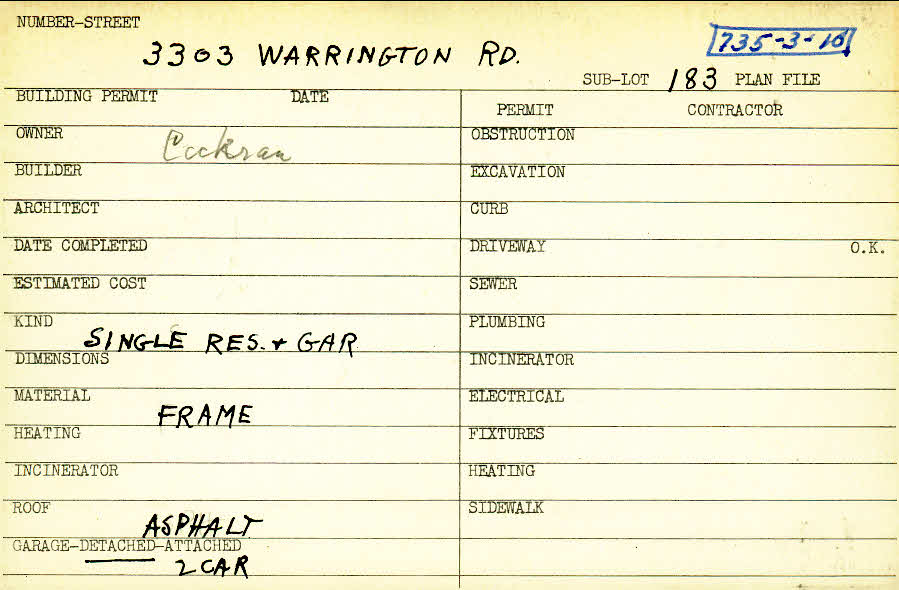 NUMBER-STREET
3303 WARRINGTON RD.
735-3-16
SUB-LOT 183 PLAN FILE
BUILDING PERMIT DATE
PERMIT CONTRACTOR
OWNER Cockran
OBSTRUCTION
BUILDER
EXCAVATION
ARCHITECT
CURB
DATE COMPLETED
DRIVEWAY O.K.
ESTIMATED COST
SEWER
KIND SINGLE RES. + GAR
PLUMBING
DIMENSIONS
INCINERATOR
MATERIAL FRAME
ELECTRICAL
HEATING
FIXTURES
INCINERATOR
HEATING
ROOF ASPHALT
SIDEWALK
GARAGE-DETACHED-ATTACHED
2 CAR